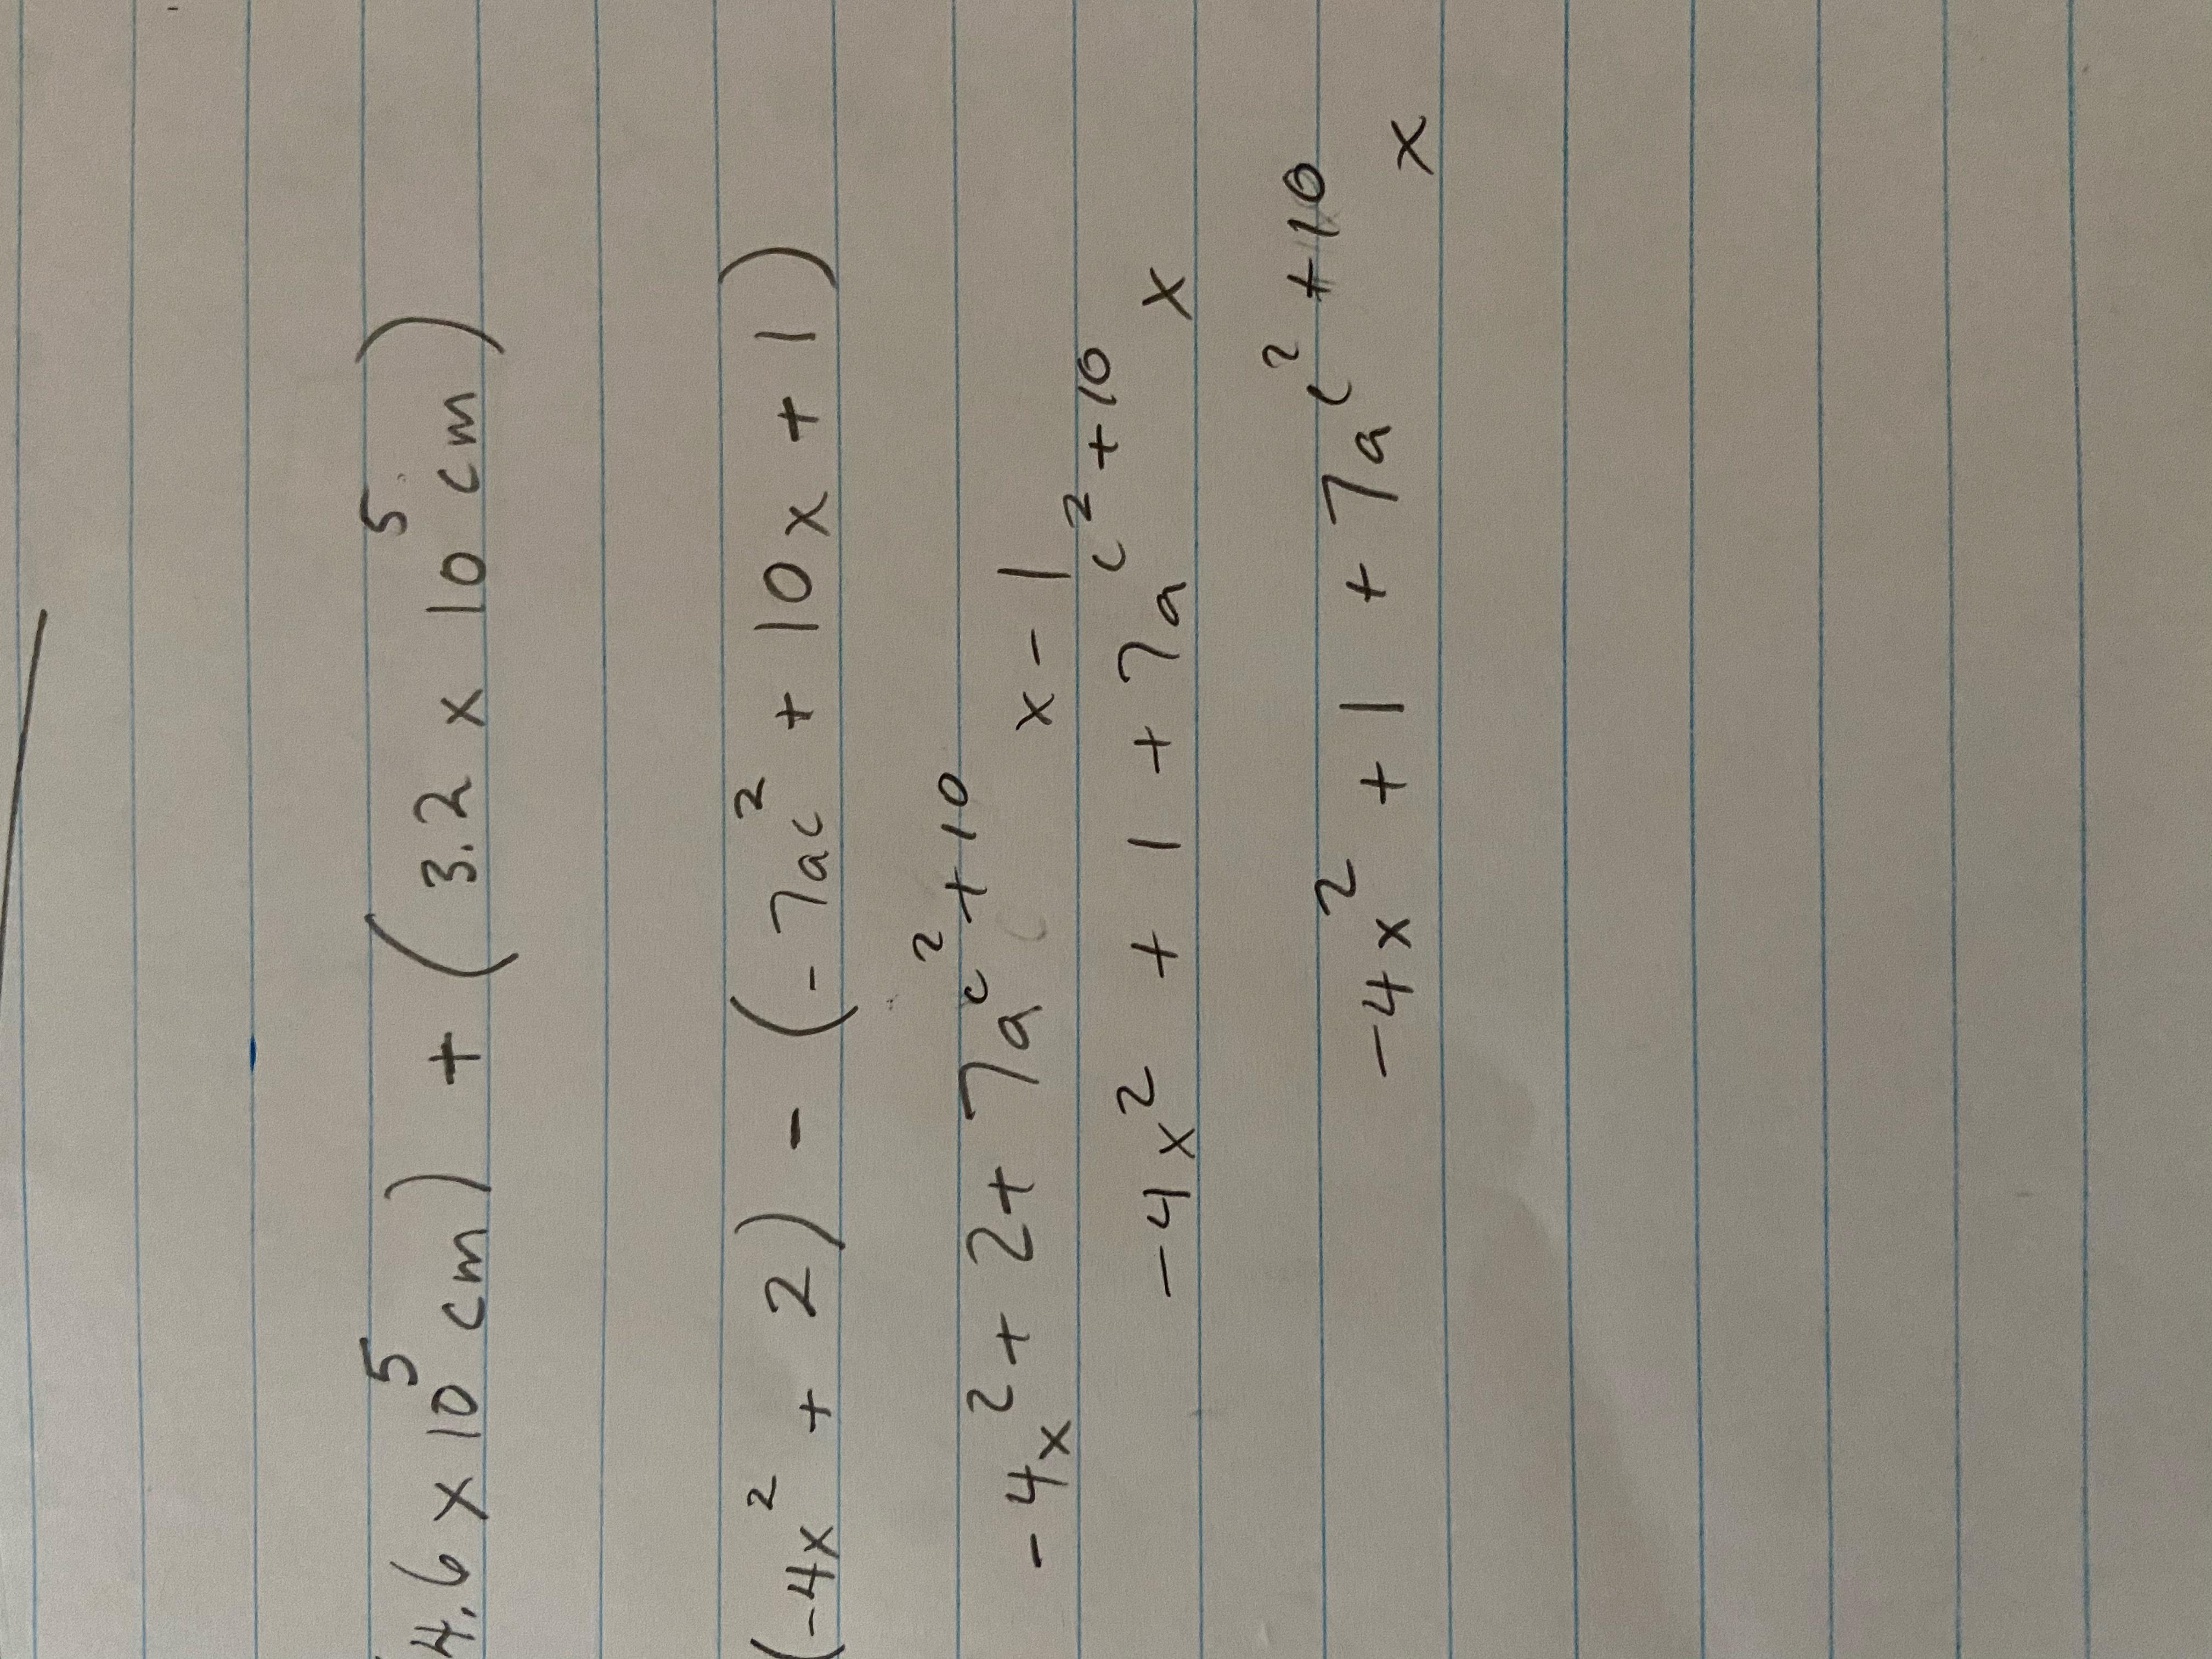 (4.6 x 10⁵ cm) + (3.2 x 10⁵ cm)
(-4x² + 2) - (-7ac² + 10x + 1)
-4x² + 2 + 7a^(c² + 10) x - 1
-4x² + 1 + 7a^(c² + 10) x
-4x² + 1 + 7a^(c² + 10) x